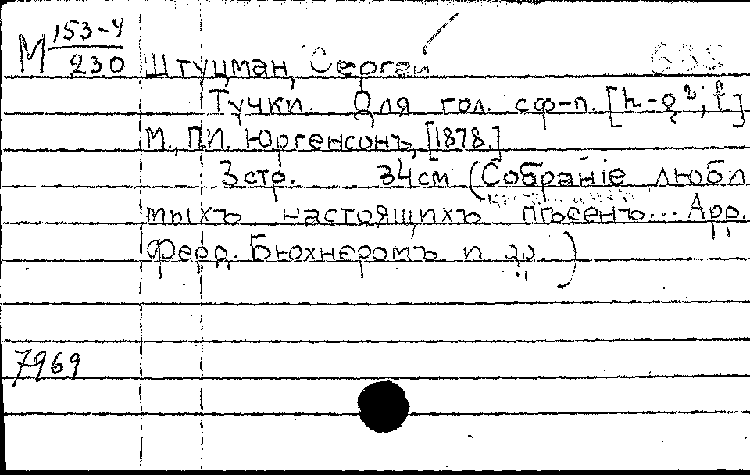 М 153-4
230
Штуцман, Сергей
Тучки. Для гол. с ф-п. [h-g²; f]
М., П.И. Юргенсонъ, [1878.]
3 стр. 34 см (Собраніе любл
мыхъ настоящихъ пѣсенъ... Арр.
Ферд. Бюхнеромъ и др.)
7969